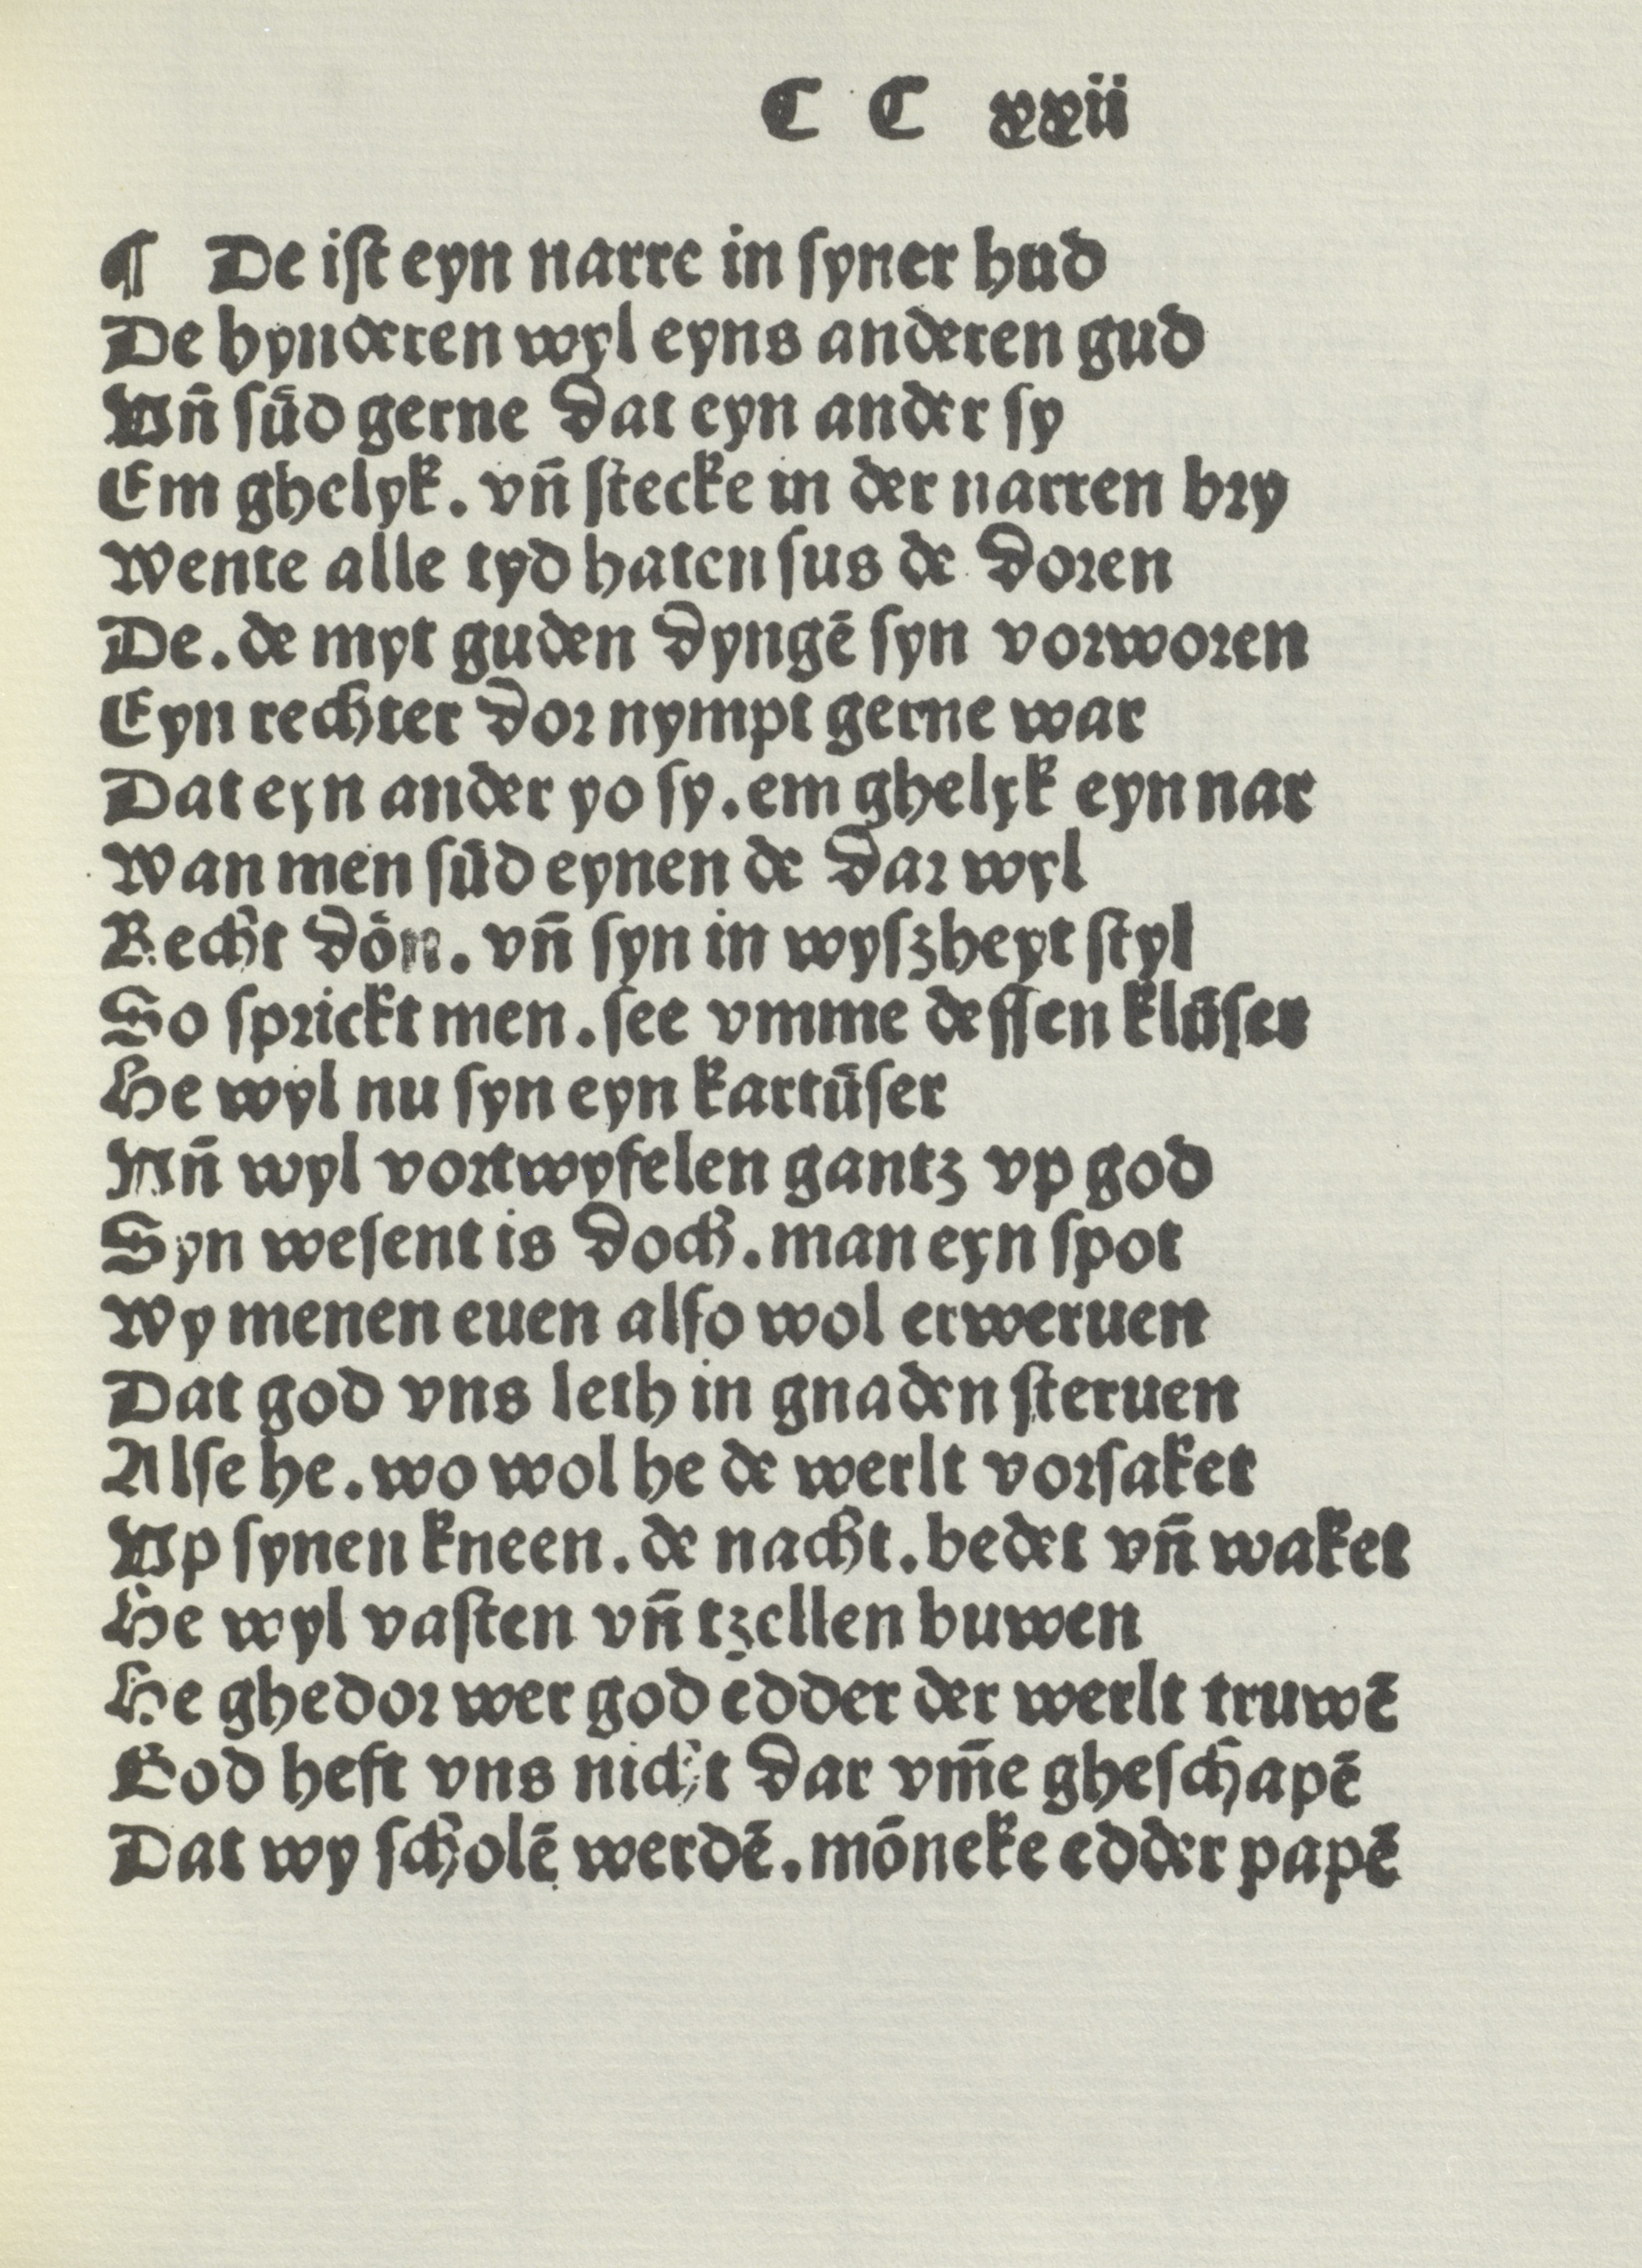 C C xxii
¶ De iſt eyn narre in ſyner hud
De hynderen wyl eyns anderen gud
Vn̄ ſuͤd gerne dat eyn ander ſy
Em ghelyk. vn̄ ſtecke in der narren bꝛy
Wente alle tyd haten ſus de doꝛen
De. de myt guden dyngē ſyn voꝛwoꝛen
Eyn rechter doꝛ nympt gerne war
Dat eyn ander yo ſy. em ghelyk eyn nar
Wan men ſuͤd eynen de daꝛ wyl
Recht doͤn. vn̄ ſyn in wyſzheyt ſtyl
So ſpꝛickt men. ſee vmme deſſen kluͤſer
He wyl nu ſyn eyn kartuͤſer
Vn̄ wyl vortwyfelen gantz vp god
Syn weſent is doch. man eyn ſpot
Wy menen euen alſo wol erweruen
Dat god vns leth in gnaden ſteruen
Alſe he. wo wol he de werlt voꝛſaket
Vp ſynen kneen. de nacht. bedet vn̄ waket
He wyl vaſten vn̄ tzellen buwen
He ghedoꝛ wer god edder der werlt truwē
God heft vns nicht dar vm̄e gheſchapē
Dat wy ſcholē werdē. moͤneke edder papē